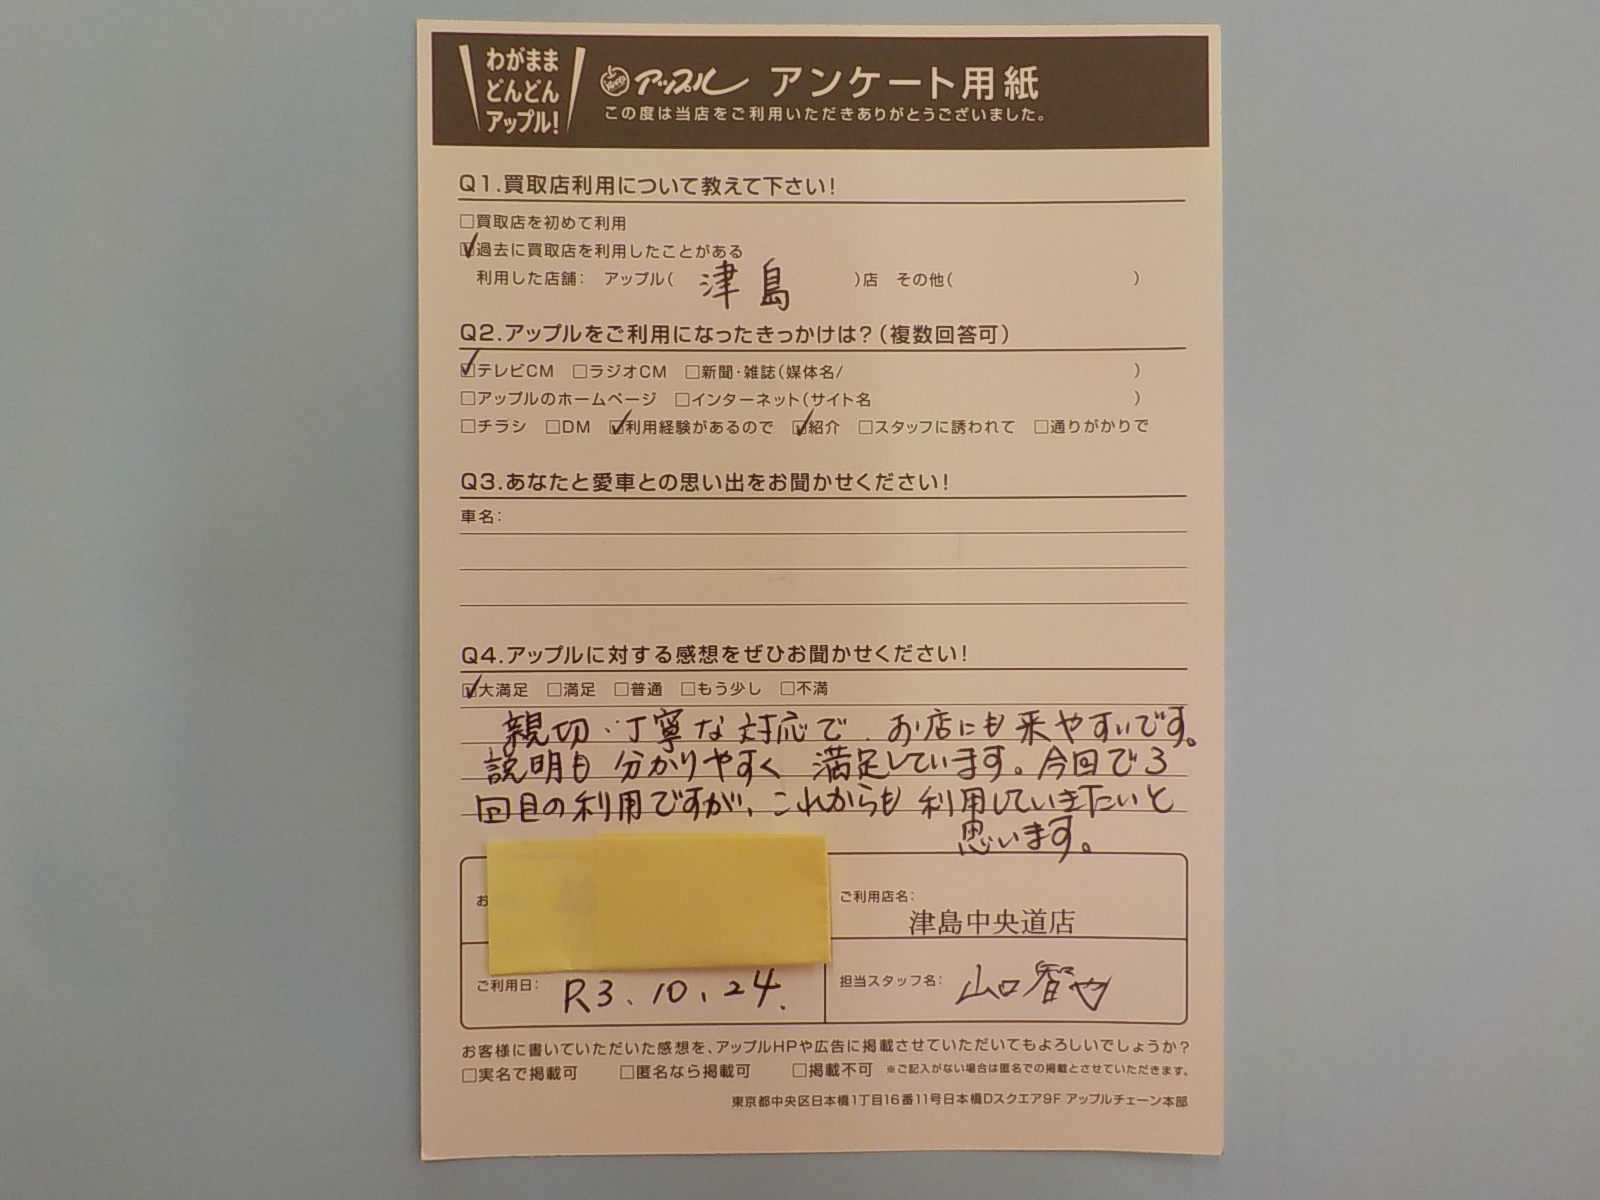 わがまま
どんどん
アップル!
アップル アンケート用紙
この度は当店をご利用いただきありがとうございました。
Q1.買取店利用について教えて下さい!
□買取店を初めて利用
☑過去に買取店を利用したことがある
利用した店舗: アップル( 津島 )店 その他( )
Q2.アップルをご利用になったきっかけは?(複数回答可)
☑テレビCM □ラジオCM □新聞・雑誌(媒体名/ )
□アップルのホームページ □インターネット(サイト名 )
□チラシ □DM ☑利用経験があるので ☑紹介 □スタッフに誘われて □通りがかりで
Q3.あなたと愛車との思い出をお聞かせください!
車名:
Q4.アップルに対する感想をぜひお聞かせください!
☑大満足 □満足 □普通 □もう少し □不満
親切・丁寧な対応で、お店にも来やすいです。
説明も分かりやすく 満足しています。今回で3
回目の利用ですが、これからも利用していきたいと
思います。
お
ご利用店名:
津島中央道店
ご利用日: R3.10.24.
担当スタッフ名: 山口智也
お客様に書いていただいた感想を、アップルHPや広告に掲載させていただいてもよろしいでしょうか?
□実名で掲載可 □匿名なら掲載可 □掲載不可 ※ご記入がない場合は匿名での掲載とさせていただきます。
東京都中央区日本橋1丁目16番11号日本橋Dスクエア9F アップルチェーン本部